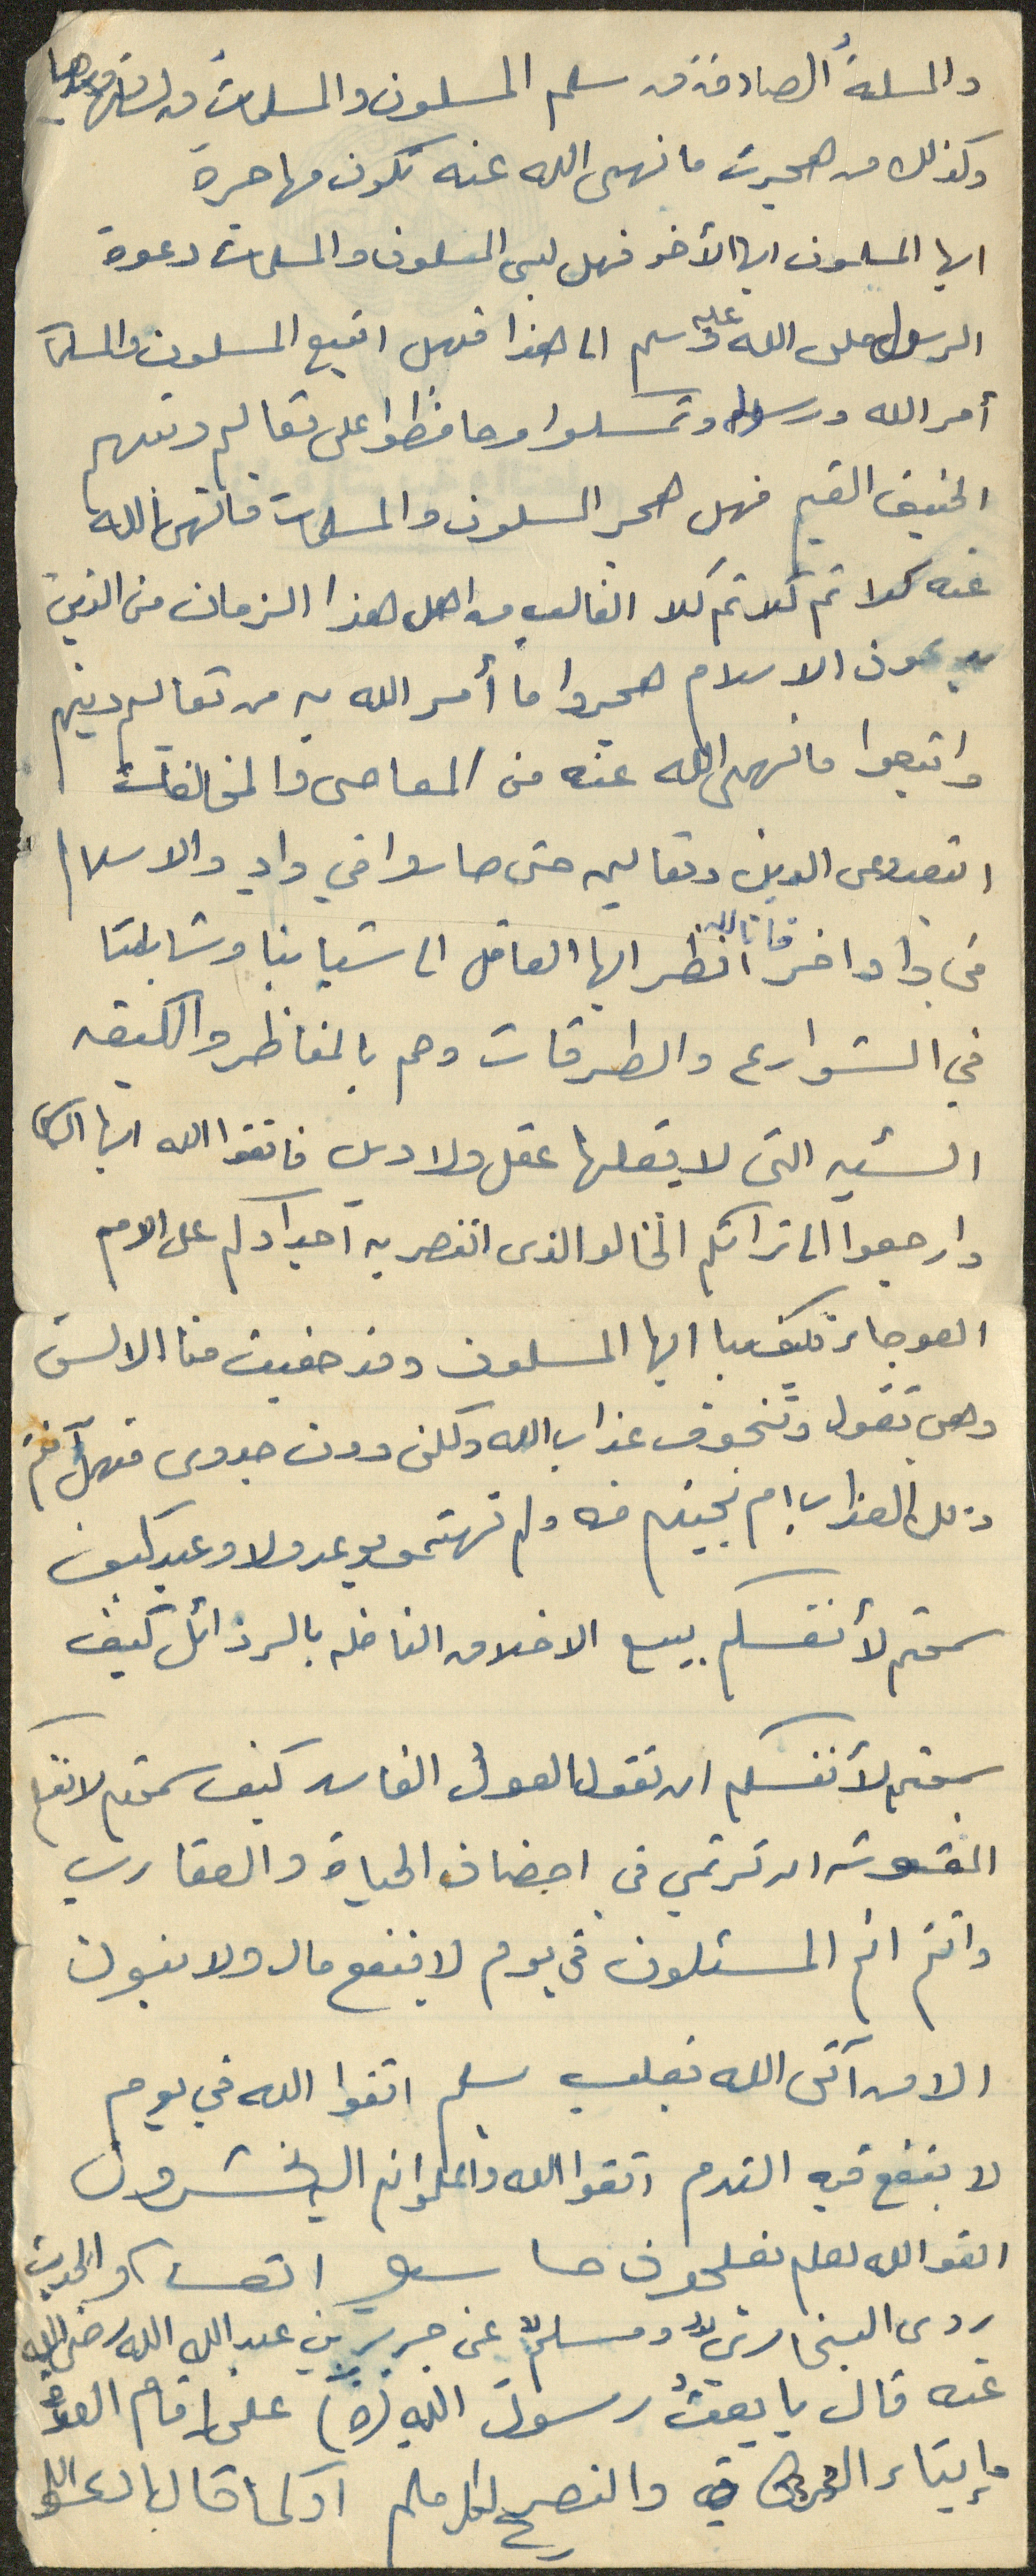 والمسلمةُ الصادقة من سلم المسلمون والمسلمات من لسانها ويدها
وكذلك من هجرت ما نهى الله عنه تكون مهاجرة
ايها المسلمون ايها الأخو فهل لبى المسلمون والمسلمات دعوة
الرسول صلى الله عليه وسلم الى هذا فهل اتبع المسلمون والمسلمات
أمر الله ورسوله وتمسكوا وحافظوا على تعاليم دينهم
الحنيف القيم فهل هجر المسلمون والمسلمات ما نهى الله
عنه كلا ثم كلا ثم كلا الغالب من اهل هذا الزمان من الذين
يدعون الاسلام هجروا ما أمر الله به من تعاليم دينهم
واتبعوا ما نهى الله عنه من المعاصى والمخالفات
ابتعدو عن الدين وتعاليمه حتى صاروا في وادٍ والاسلام
في وادٍ اخر فانا لله انظر ايها العاقل الى شبابنا وشاباتنا
في الشوارع والطرقات وهم بالمناظر والكيفيه
السيئه التى لا يقبلها عقل ولا دين فاتقوا الله ايها الناس
وارجعوا الى تراثكم الخالد الذى انتصر به اجدادكم على الامم
العوجاء كيف بنا ايها المسلمون وقد حفيت منا الالسن
وهى تقول وتخوف عذاب الله ولكن دون جدوى فهل آمنتم
ذلك العذاب ام نجيتم منه ولم تهتمو بوعد ولا وعيد كيف
سمحتم لأنفسكم ببيع الاخلاق الفاضله بالرذائل كيف
سمحتم لأنفسكم ان تقول القول الفاسد كيف سمحتم لانفسكم
ان ترتمي في احضان الحياة والعقارب
وانتم انتم المسئلون في يوم لا ينفع مال ولا بنون
الا من أتى الله بقلب سليم اتقوا الله في يوم
لا ينفع فيه الندم اتقوا الله واعلموا انكم اليه تحشرون
اتقو الله لعلكم تفلحون والحديث
روى البخاري ومسلم عن جرير بن عبد الله الله رضى الله
عنه قال بايعتُ رسول الله (ص) على اقام الصلاة
وإيتاء الزكاة والنصح لكل مسلم او كما قال